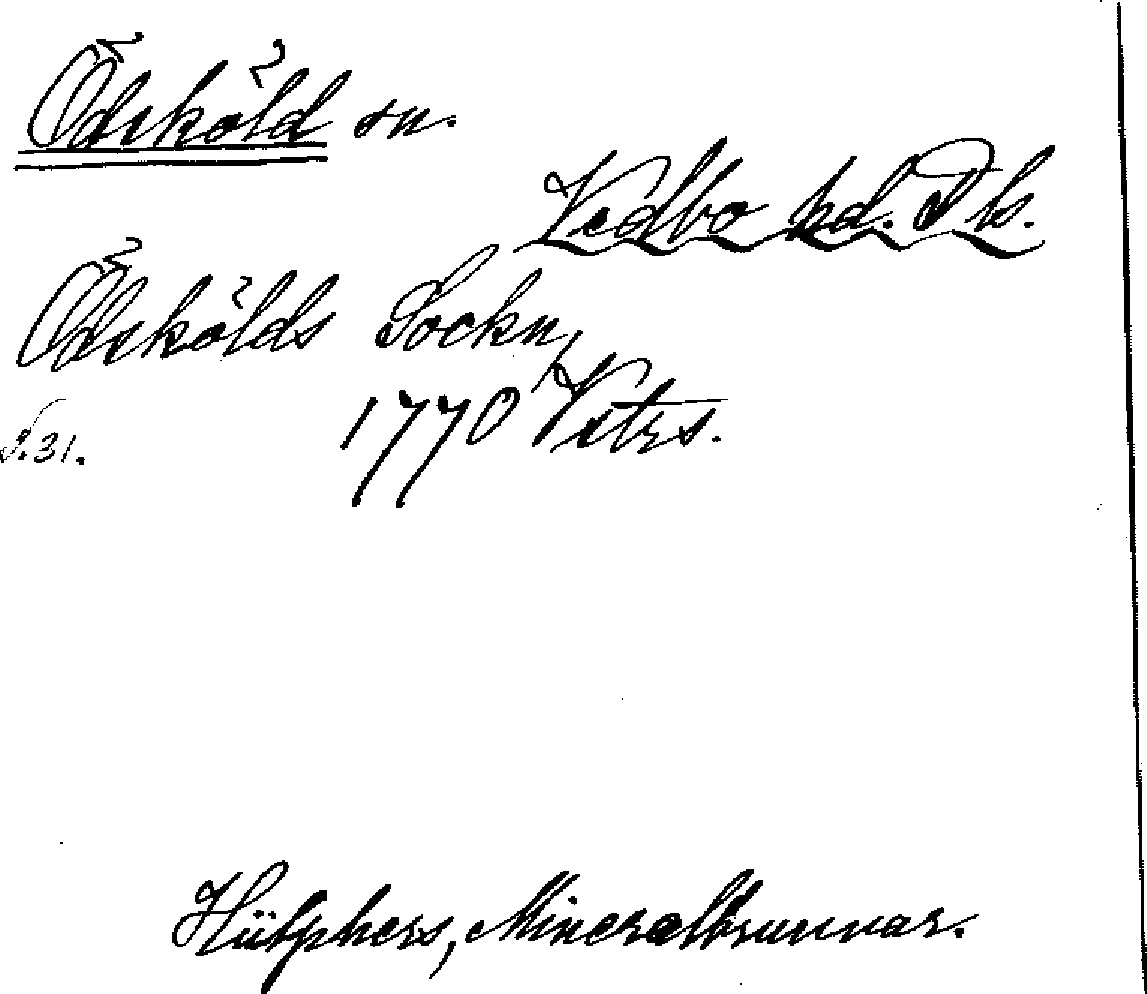 Ödsköld sn.
Vedbo hd. Dls.
Ödskölds Sockn,
1770 Vstrs.
S. 31.
Hülphers, Mineralbrunnar.